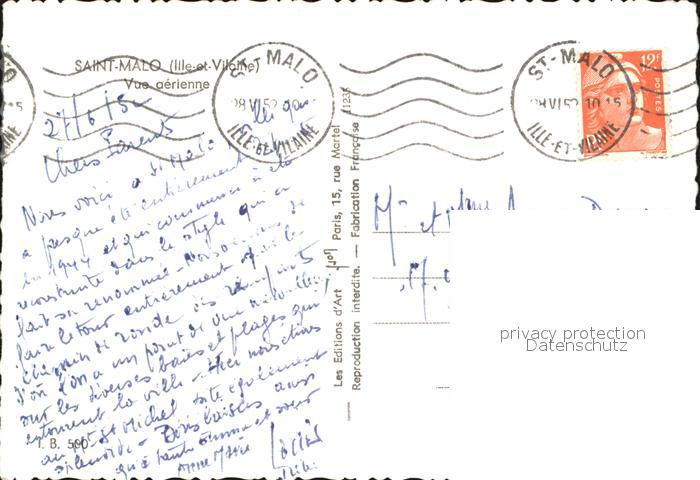 SAINT-MALO (Ille-et-Vilaine)
Vue aérienne
St-MALO
28 VI 52
ILLE-ET-VILAINE
ST-MALO
28 VI 52 10.15
ILLE-ET-VILAINE
19F
POSTES
27/6/52
Chers Parents
Nous voici a St Malo
a presque été entièrement
en 1944 et qui commence à être
reconstruite dans le style qui a
fait sa renommée - Nous venons de
faire le tour entièrement par le
chemin de ronde des remparts
d'où l'on a un point de vue merveilleux
sur les diverses baies et plages qui
entourent la ville - Hier nous étions
au Mt St Michel site également
splendide - Bons baisers
Anne Marie
I. B. 590
Les Editions d'Art Paris, 15, rue Martel
Reproduction interdite. — Fabrication Française
privacy protection
Datenschutz